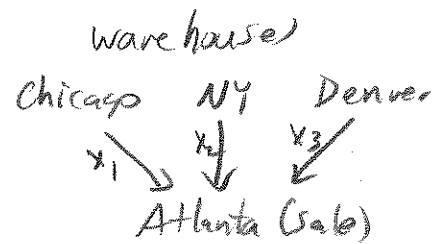 warehouse
Chicago NY Denver
x1 x2 x3
Atlanta (sale)